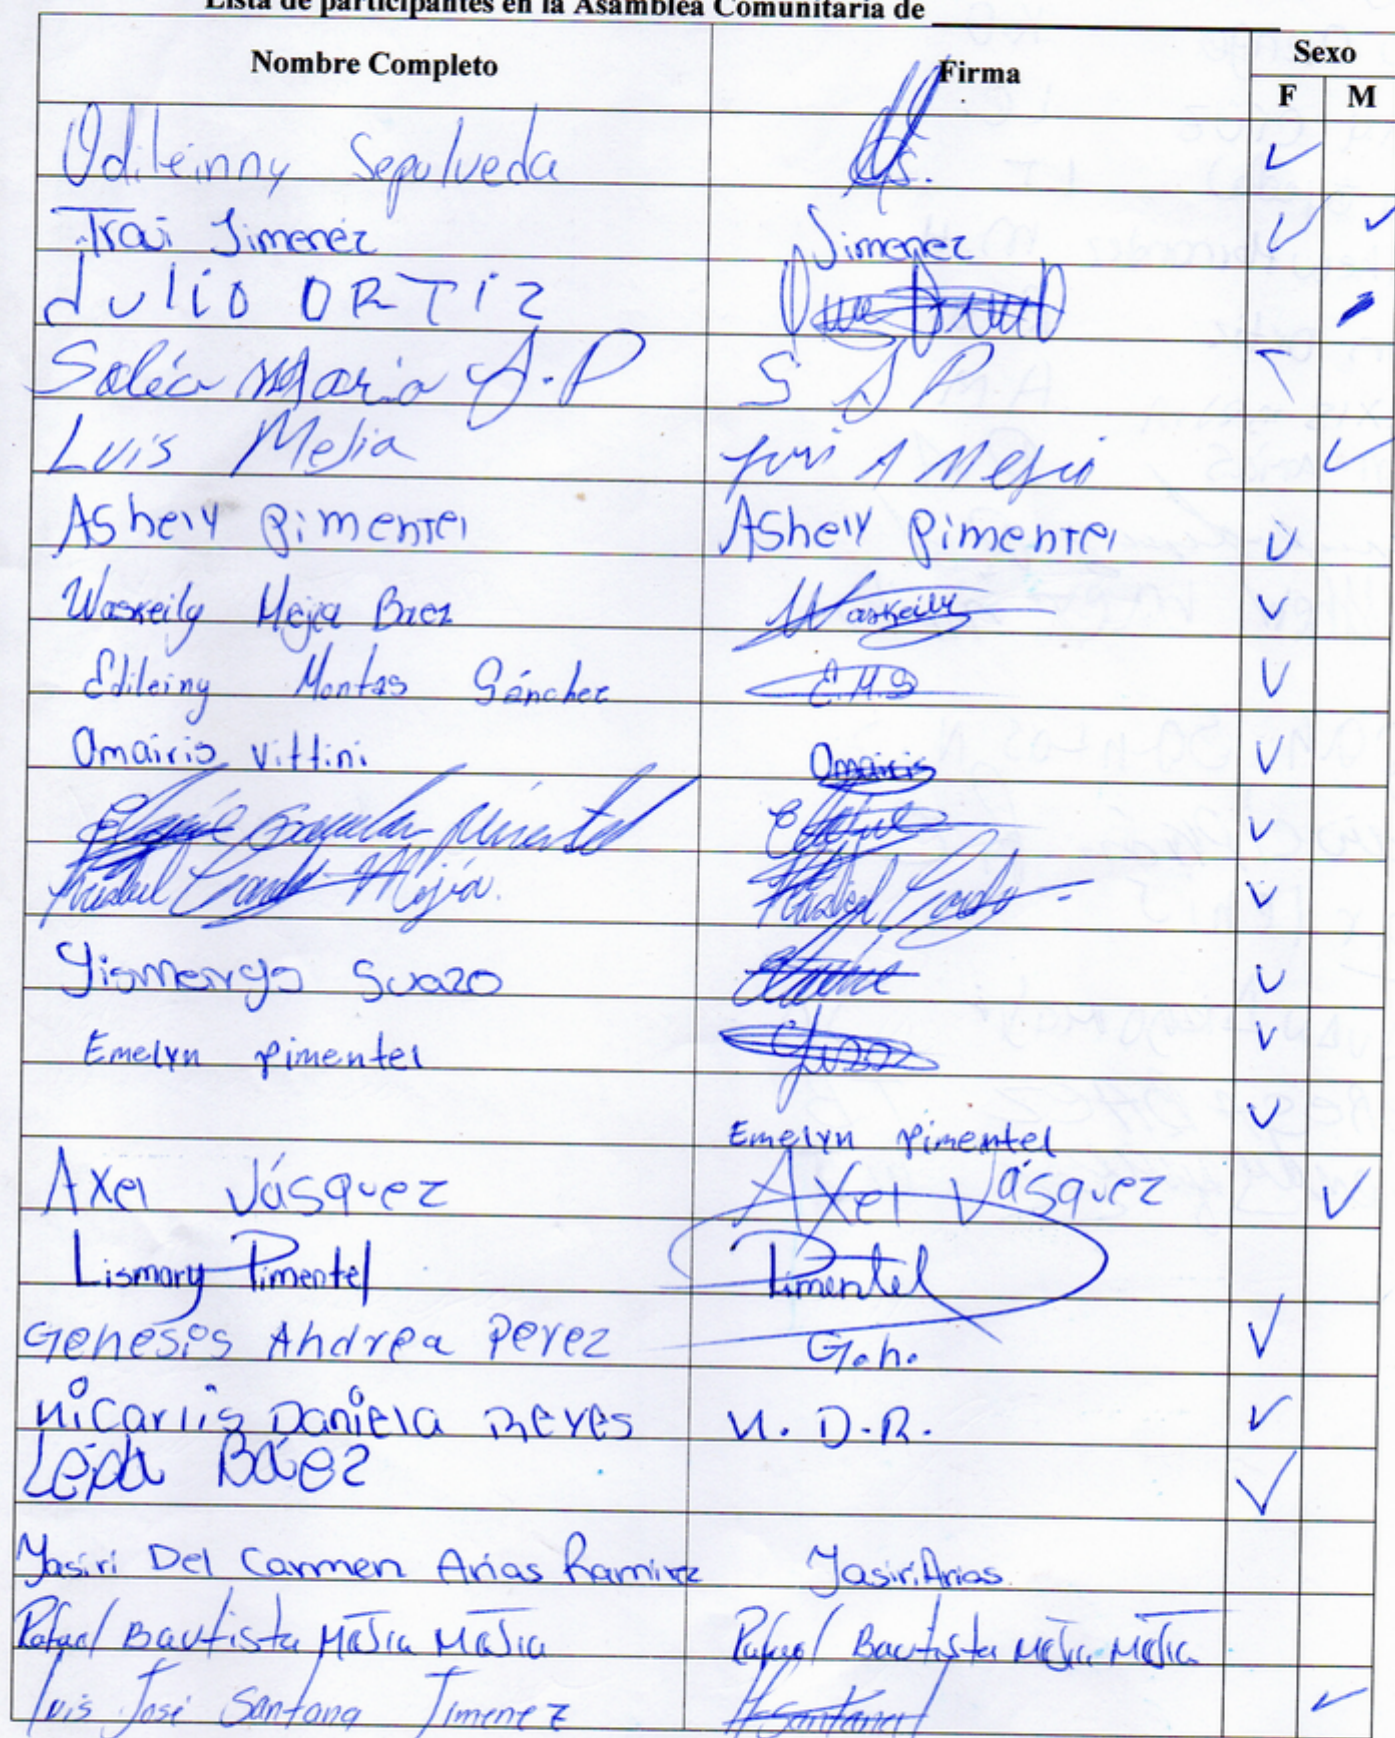 Lista de participantes en la Asamblea Comunitaria de
Nombre Completo Firma Sexo
F M
Odileinny Sepulveda
Trai Jimenez Jimenez
Julio ORTiz
Maria J.P S J P
Luis Mejia Luis A Mejia
AShely Pimentel AShely Pimentel
Waskeily Mejia Baez Waskeily
Edileiny Montas Sánchez E.M.S
Omairis Vittini Omairis
Pimentel
Mejía.
Suazo
Emelyn Pimentel
Emelyn Pimentel
Axel Vásquez Axel Vásquez
Lismary Pimentel Pimentel
Genesis Andrea Perez G.n.
nicarlis Daniela Reyes N. D.R.
Báez
Yasiri Del Carmen Arias Ramirez Yasiri Arias
Rafael Bautista MeJia MeJia Rafael Bautista MeJia MeJia
Luis José Santana Jimenez Santana